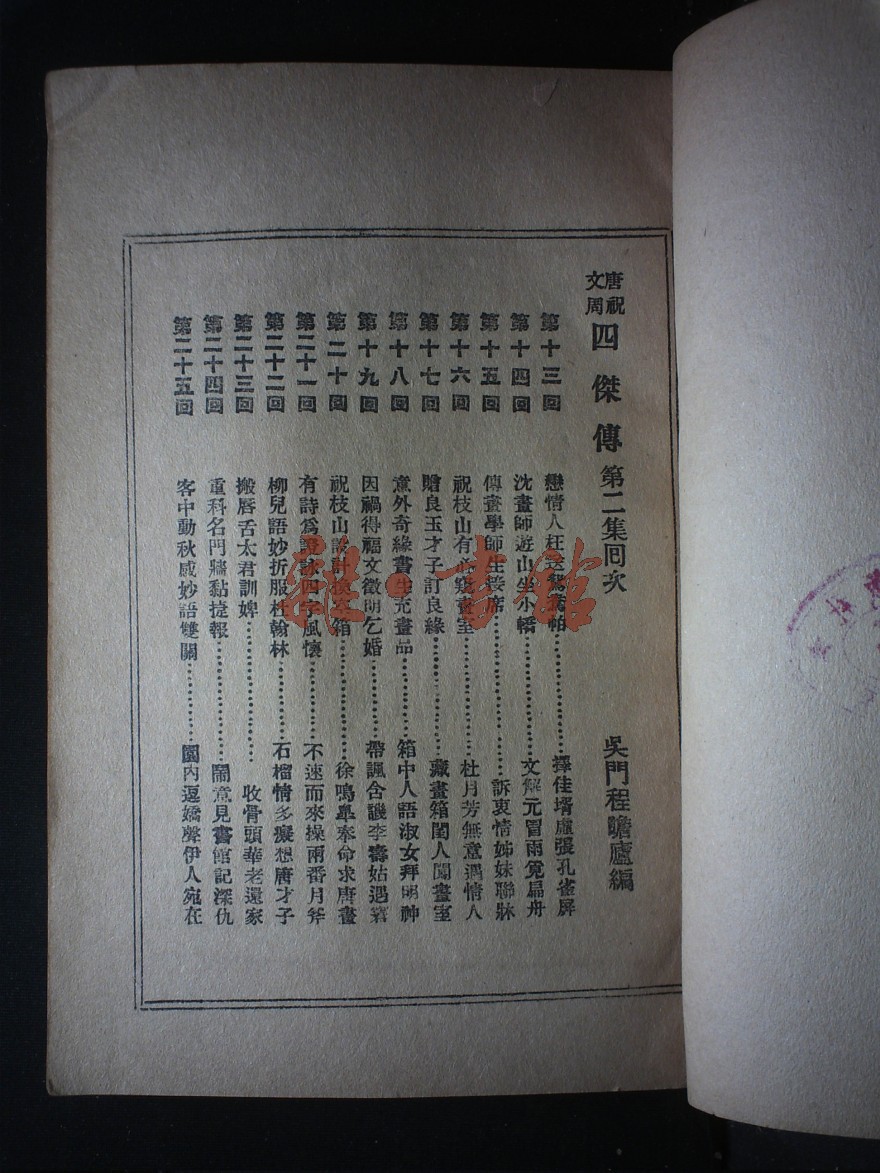 唐祝文周四傑傳 第二集回次 吳門程瞻廬編
第十三回 戀情人枉送鴛鴦帕……擇佳壻虛張孔雀屏
第十四回 沈畫師遊山坐小轎……文解元冒雨覓扁舟
第十五回 傳畫學師生接席……訴衷情姊妹聯牀
第十六回 祝枝山有心窺畫室……杜月芳無意遇情人
第十七回 贈良玉才子訂良緣……藏畫箱閨人闖畫室
第十八回 意外奇緣書生充畫品……箱中人語淑女拜明神
第十九回 因禍得福文徵明乞婚……帶諷含譏李壽姑遇窘
第二十回 祝枝山設計換空箱……徐鳴臯奉命求唐畫
第二十一回 有詩爲證詠四字風懷……不速而來操兩番月斧
第二十二回 柳兒語妙折服杜翰林……石榴情多癡想唐才子
第二十三回 搬唇舌太君訓婢……收骨頭華老還家
第二十四回 重科名門牆黏捷報……鬧意見書館記深仇
第二十五回 客中動秋感妙語雙關……園內逗嬌聲伊人宛在
雜·書館